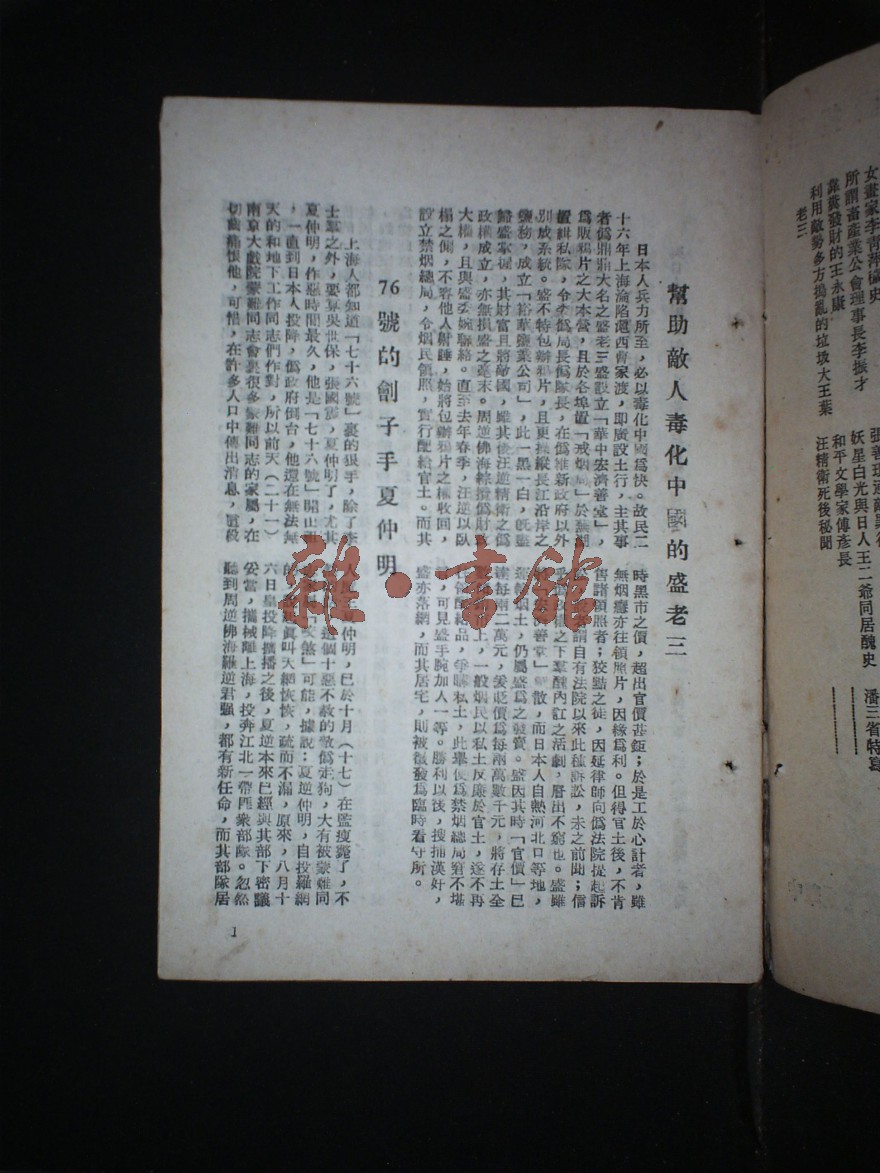 女畫家李青萍穢史
所謂畜產業公會理事長李振才
靠糞發財的王永康
利用敵勢多方搗亂的垃圾大王葉
老三
妖星白光與日人王二爺同居醜史
和平文學家傅彥長
汪精衛死後秘聞
潘三省特寫
幫助敵人毒化中國的盛老三
日本人兵力所至，必以毒化中國為快。故民二
十六年上海淪陷滬西曹家渡，即廣設土行，主其事
者僞鼎鼎大名之盛老三盛設立「華中宏濟善堂」，
爲販鴉片之大本營，且於各埠置「戒烟局」於蕪湖
置緝私隊，令季僞局長僞隊長，在僞維新政府以外
別成系統。盛不特包辦鴉片，且更操縱長江沿岸之
鹽務，成立「裕華鹽業公司」，此一黑一白，旣盡
歸盛掌握，其財富且將敵國，雖其後汪逆精衛之僞
政權成立，亦無損盛之毫末。周逆佛海綜攬僞財政
大權，且與盛委婉聯絡。直至去年春季，汪逆以臥
榻之側，不容他人鼾睡，始將包辦鴉片之權收回，
設立禁烟總局，令烟民領照，實行配給官土。而其
時黑市之價，超出官價甚鉅；於是工於心計者，雖
無烟癮亦往領照片，因緣爲利。但得官土後，不肯
售諸領照者；狡黠之徒，因延律師向僞法院提起訴
謂自有法院以來此種訴訟，未之前聞；信
之下羣醜內訌之活劇，層出不窮也。盛雖
善堂」散，而日本人自熱河北口等地，
烟土，仍屬盛爲之發賣。盛因其時「官價」已
達每兩二萬元，爰貶價爲每兩萬數千元，將存土全
上，一般烟民以私土反廉於官土，遂不再
配給品，爭購私土，此舉使爲禁烟總局窘不堪
，可見盛手腕加人一等。勝利以後，搜捕漢奸，
盛亦落網，而其居宅，則被徵發爲臨時看守所。
76號的劊子手夏仲明
上海人都知道「七十六號」裏的狠手，除了李
士羣之外，要算吳世保，張國震，夏仲明了，尤其
夏仲明，作惡時間最久，他是「七十六號」開山
，一直到日本人投降，僞政府倒台，他還在無法無
天的和地下工作同志們作對，所以前天（二十一）
南京大戲院蒙難同志會裏很多蒙難同志的家屬，在
切齒痛恨他，可惜，在許多人口中傳出消息，置段
夏仲明，已於十月（十七）在監瘦斃了，不
這個十惡不赦的敵僞走狗，大有被蒙難同
」可能，據說；夏逆仲明，自投羅網
的，說起眞叫天網恢恢，疏而不漏，原來，八月十
六日皇投降擴播之後，夏逆本來已經與其部下密議
妥當，攜械離上海，投奔江北一帶匪衆部隊。忽然
聽到周逆佛海羅逆君强，都有新任命，而其部隊居
1
雜·書館